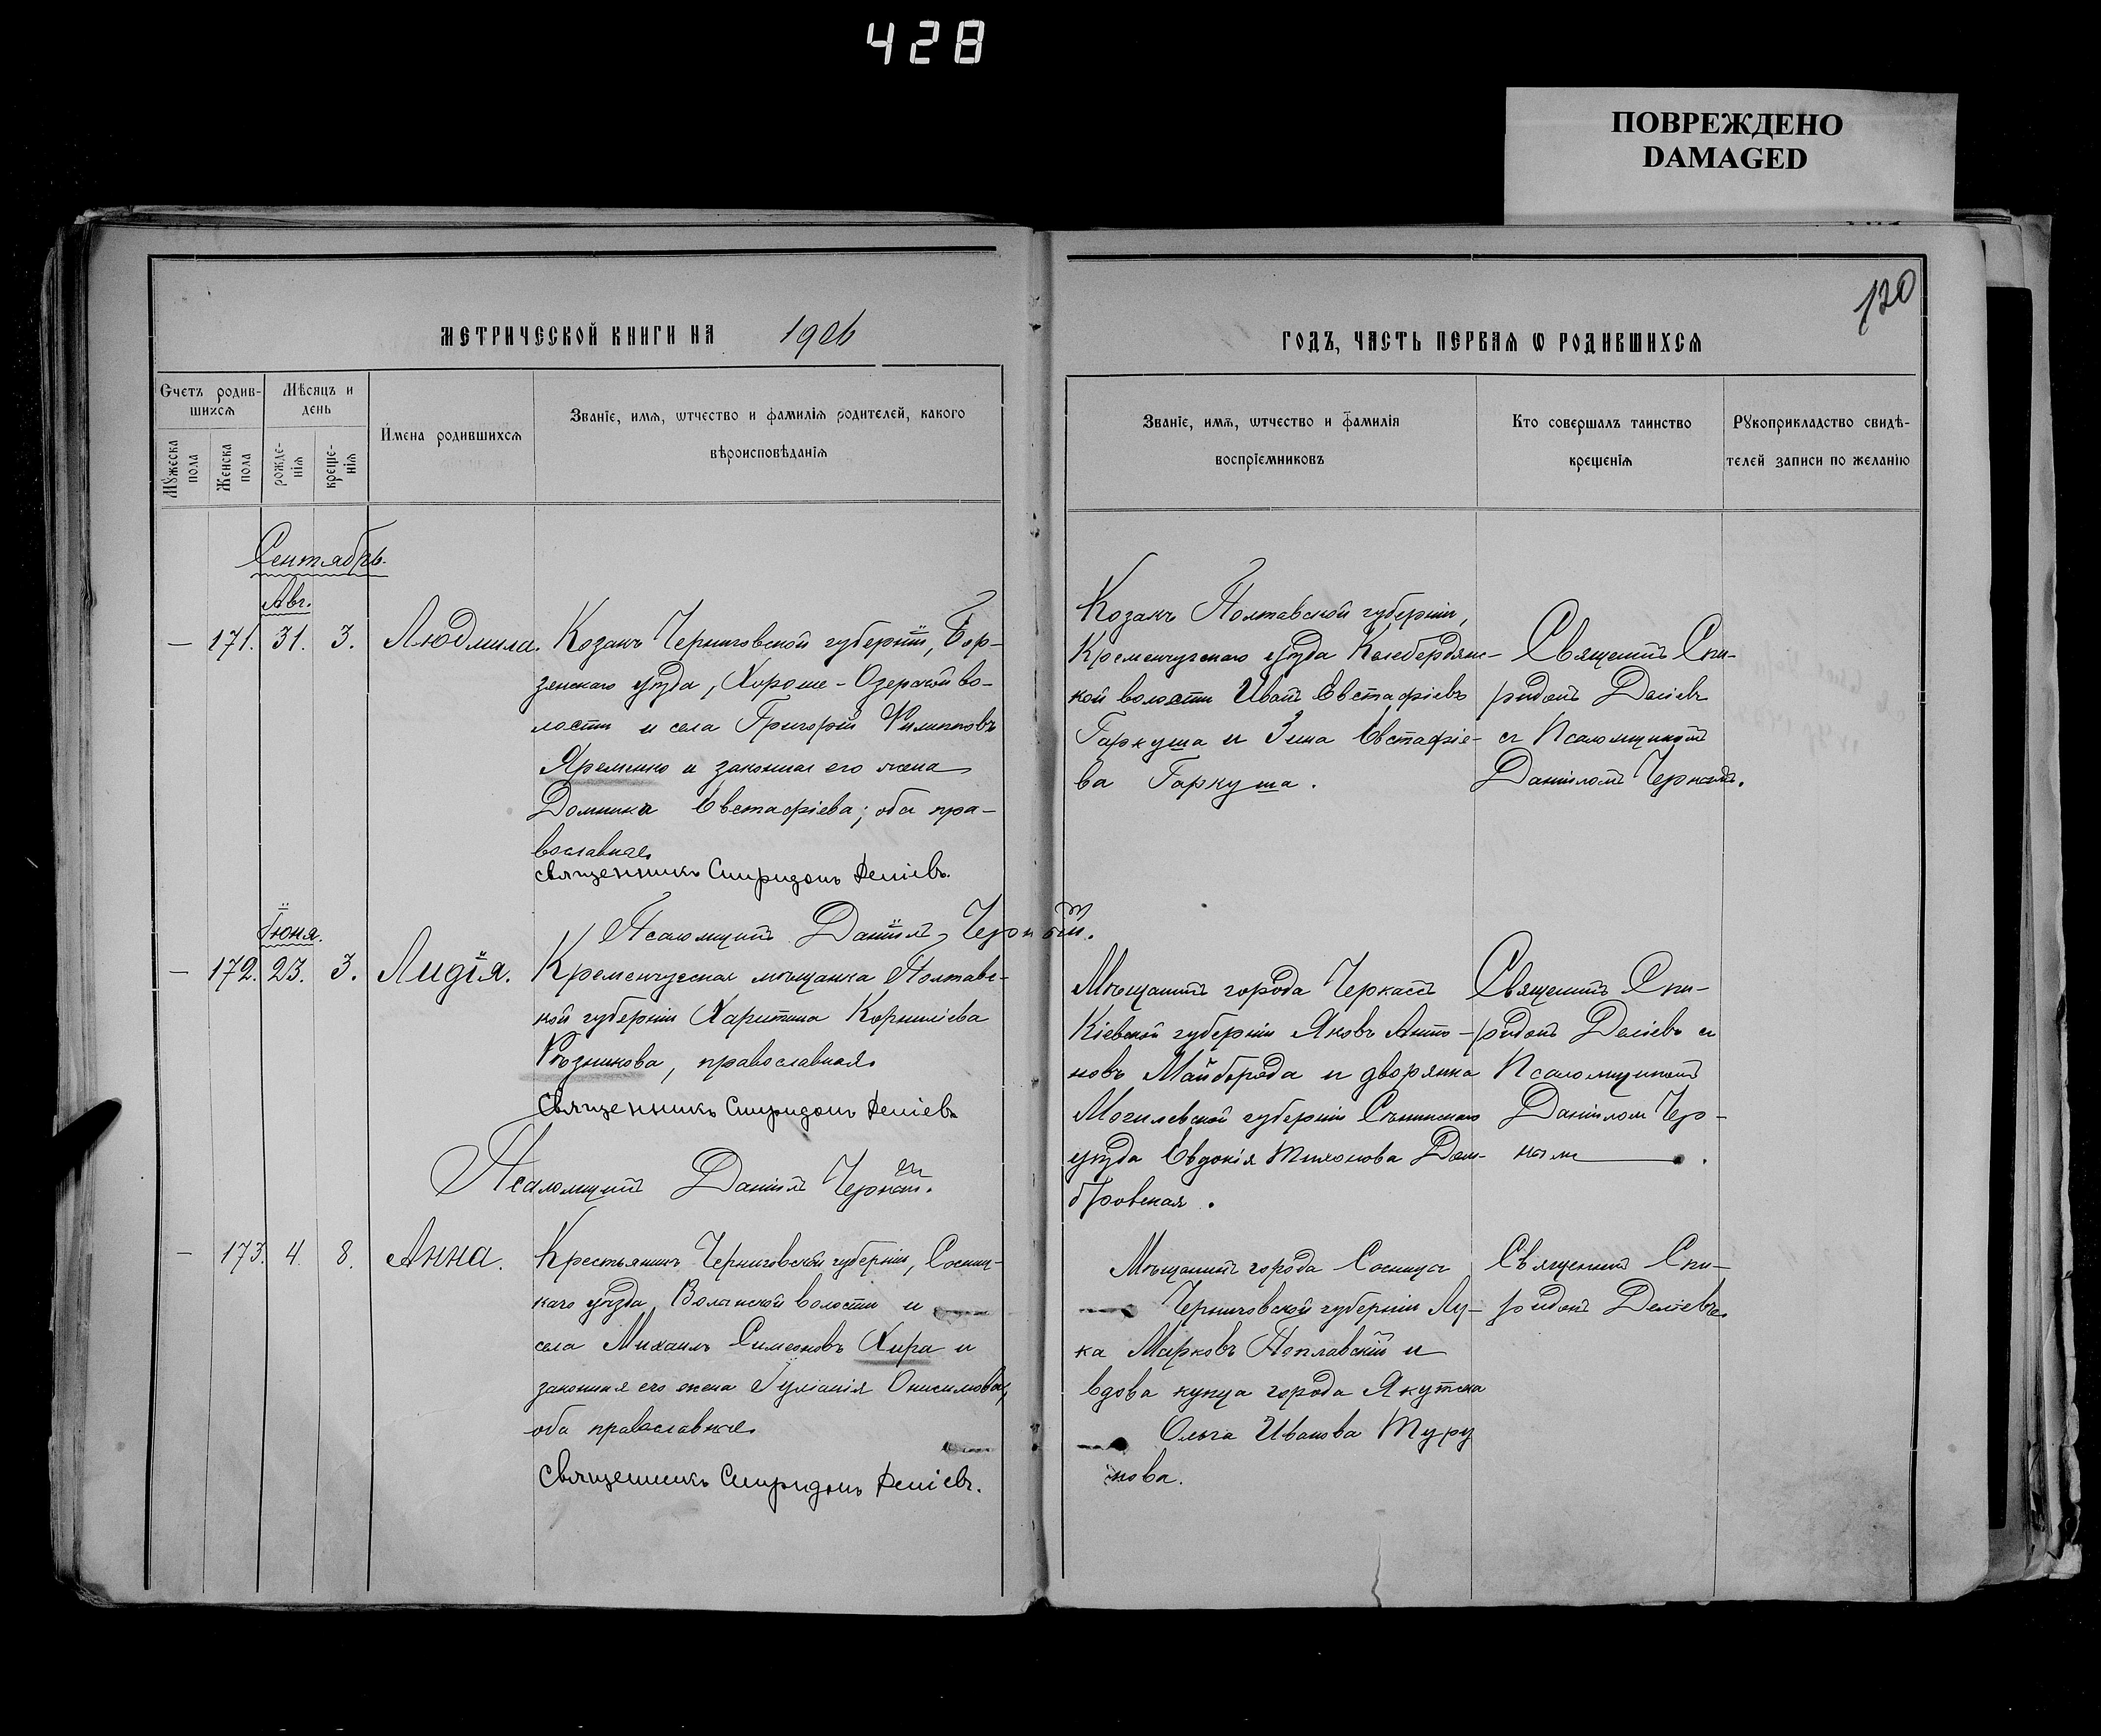 428
ПОВРЕЖДЕНО
DAMAGED
120
МЕТРИЧЕСКОЙ КНИГИ НА 1906
ГОДЪ, ЧАСТЬ ПЕРВАѦ Ѡ РОДИВШИХСѦ
Счетъ родив-
шихсѧ
Мѣсяцъ и
день
Мꙋжеска
пола
Женска
пола
рожде-
нїѧ
креще-
нїѧ
Имена родившихсѧ
Званїе, имѧ, ѡтчество и фамилїѧ родителей, какого
вѣроисповѣданїѧ
Званїе, имѧ, ѡтчество и фамилїѧ
воспрїемниковъ
Кто совершалъ таинство
крещенїѧ
Рꙋкоприкладство свидѣ-
телей записи по желанїю
Сентябрь.
Авг.
— 171. 31. 3. Людмила.
Козакъ Черниговской губерніи, Бор-
зенскаго уѣзда, Хороше-Озерской во-
лости и села Григорій Филипповъ
Яременко и законная его жена
Домника Евстафіева; оба пра-
вославные.
Священникъ Спиридонъ Деліевъ.
Псаломщикъ Даніилъ Черный.
Козакъ Полтавской губерніи,
Кременчугскаго уѣзда Келебердянс-
кой волости Иванъ Евстафіевъ
Гаркуша и Зина Евстафіе-
ва Гаркуша.
Священникъ Спи-
ридонъ Деліевъ
съ Псаломщикомъ
Даніиломъ Чернымъ.
Іюня.
— 172. 23. 3. Лидія.
Кременчугская мѣщанка Полтавс-
кой губерніи Харитина Корниліева
Рѣзникова, православная.
Священникъ Спиридонъ Деліевъ.
Псаломщикъ Даніилъ Черный.
Мѣщанинъ города Черкасъ
Кіевской губерніи Яковъ Анто-
новъ Майборода и дворянка
Могилевской губерніи Сѣнинскаго
уѣзда Евдокія Тихонова Дом-
бровская.
Священникъ Спи-
ридонъ Деліевъ съ
Псаломщикомъ
Даніиломъ Чер-
нымъ.
— 173. 4. 8. Анна.
Крестьянинъ Черниговской губерніи, Сосниц-
каго уѣзда, Волынской волости и
села Михаилъ Симеоновъ Хира и
законная его жена Іуліанія Онисимова,
оба православные.
Священникъ Спиридонъ Деліевъ.
Мѣщанинъ города Сосницы
Черниговской губерніи Лу-
ка Марковъ Поплавскій и
вдова купца города Якутска
Ольга Иванова Туру
нова.
Священникъ Спи-
ридонъ Деліевъ.